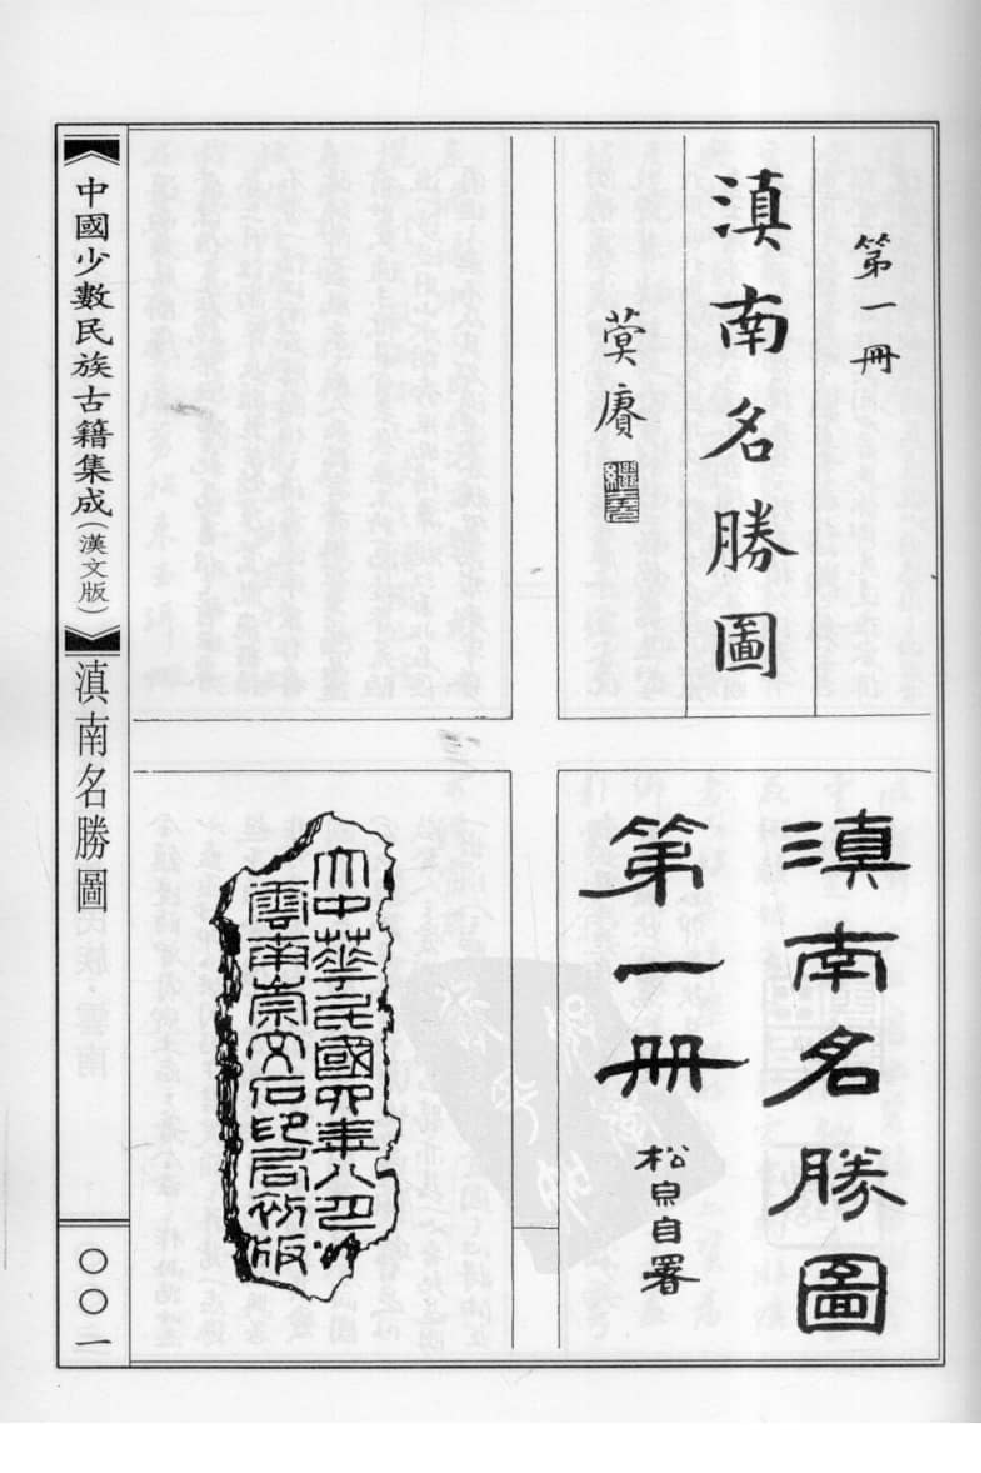 第一冊
滇南名勝圖
蓂賡
滇南名勝圖
第一冊
松泉自署
大中華民國四年八月
雲南崇文石印局初版
《中國少數民族古籍集成(漢文版)》
滇南名勝圖
〇〇一